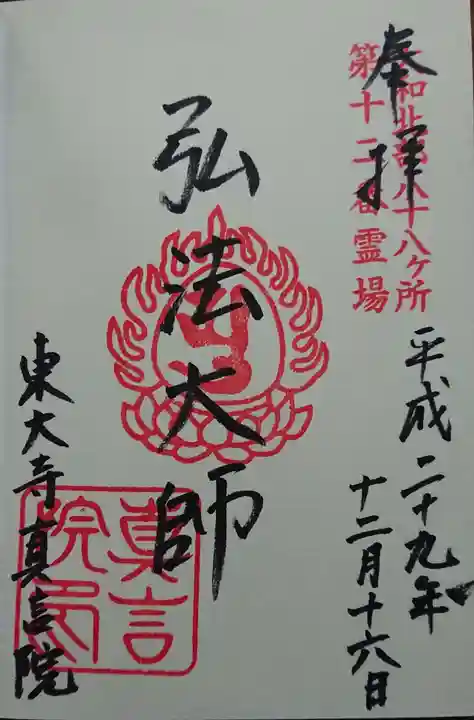 奉拝
大和北部八十八ヶ所
第十二番霊場
平成二十九年
十二月十六日
弘法大師
東大寺真言院
真言院印